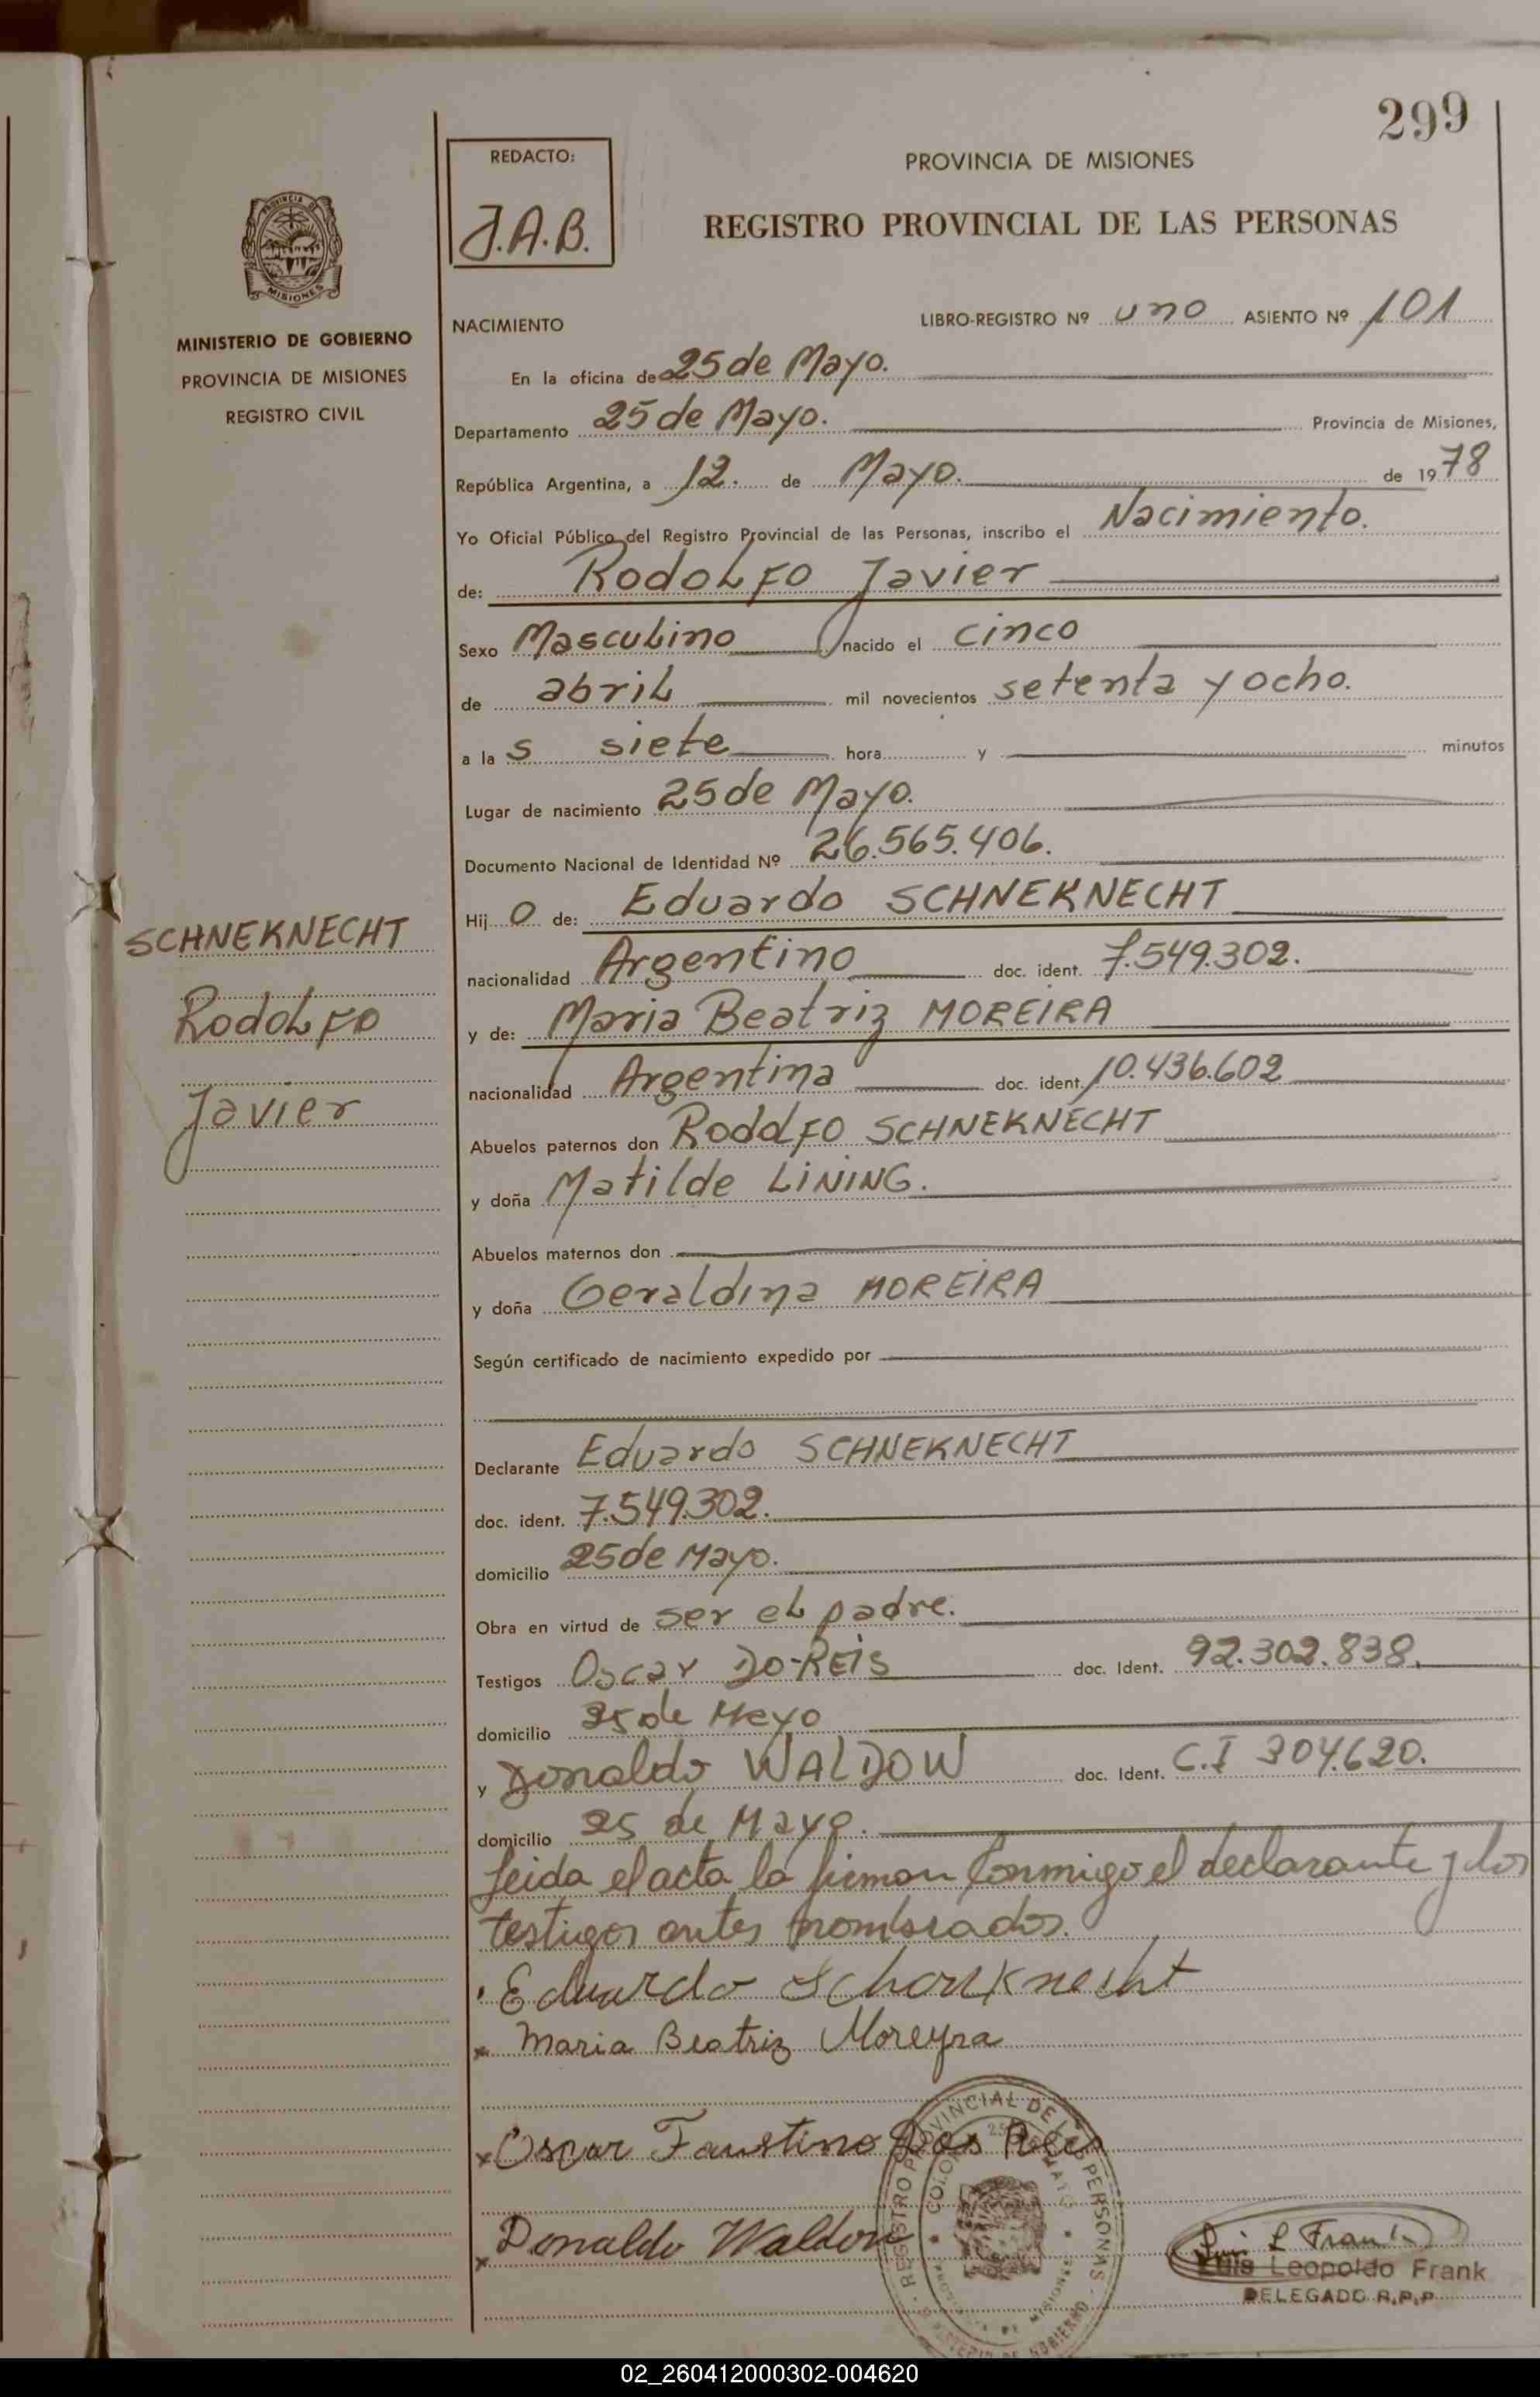 299
REDACTO:
J.A.B.
PROVINCIA DE MISIONES
REGISTRO PROVINCIAL DE LAS PERSONAS
PROVINCIA DE
MISIONES
MINISTERIO DE GOBIERNO
PROVINCIA DE MISIONES
REGISTRO CIVIL
NACIMIENTO LIBRO-REGISTRO Nº uno ASIENTO Nº 101
En la oficina de 25 de Mayo.
Departamento 25 de Mayo. Provincia de Misiones,
República Argentina, a 12. de Mayo. de 1978
Yo Oficial Público del Registro Provincial de las Personas, inscribo el Nacimiento.
de: Rodolfo Javier
Sexo Masculino nacido el cinco
de abril mil novecientos setenta y ocho.
a la s siete hora y minutos
Lugar de nacimiento 25 de Mayo.
Documento Nacional de Identidad Nº 26.565.406.
Hij o de: Eduardo SCHNEKNECHT
nacionalidad Argentino doc. ident. 7.549.302.
y de: Maria Beatriz MOREIRA
nacionalidad Argentina doc. ident. 10.436.602
Abuelos paternos don Rodolfo SCHNEKNECHT
y doña Matilde LINING.
Abuelos maternos don
y doña Geraldina MOREIRA
Según certificado de nacimiento expedido por
Declarante Eduardo SCHNEKNECHT
doc. ident. 7.549.302.
domicilio 25 de Mayo.
Obra en virtud de ser el padre.
Testigos Oscar DO-REIS doc. Ident. 92.302.838.
domicilio 25 de Mayo
y Donaldo WALDOW doc. Ident. C.I 304.620.
domicilio 25 de Mayo.
Leida el acta la firman Conmigo el declarante y los
testigos antes nombrados.
Eduardo Schonknecht
x Maria Beatriz Moreyra
x Oscar Faustino Dos Reis
x Donaldo Waldow
SCHNEKNECHT
Rodolfo
Javier
REGISTRO PROVINCIAL DE LAS PERSONAS
Luis L Frank
Luis Leopoldo Frank
DELEGADO R.P.P.
02_260412000302-004620